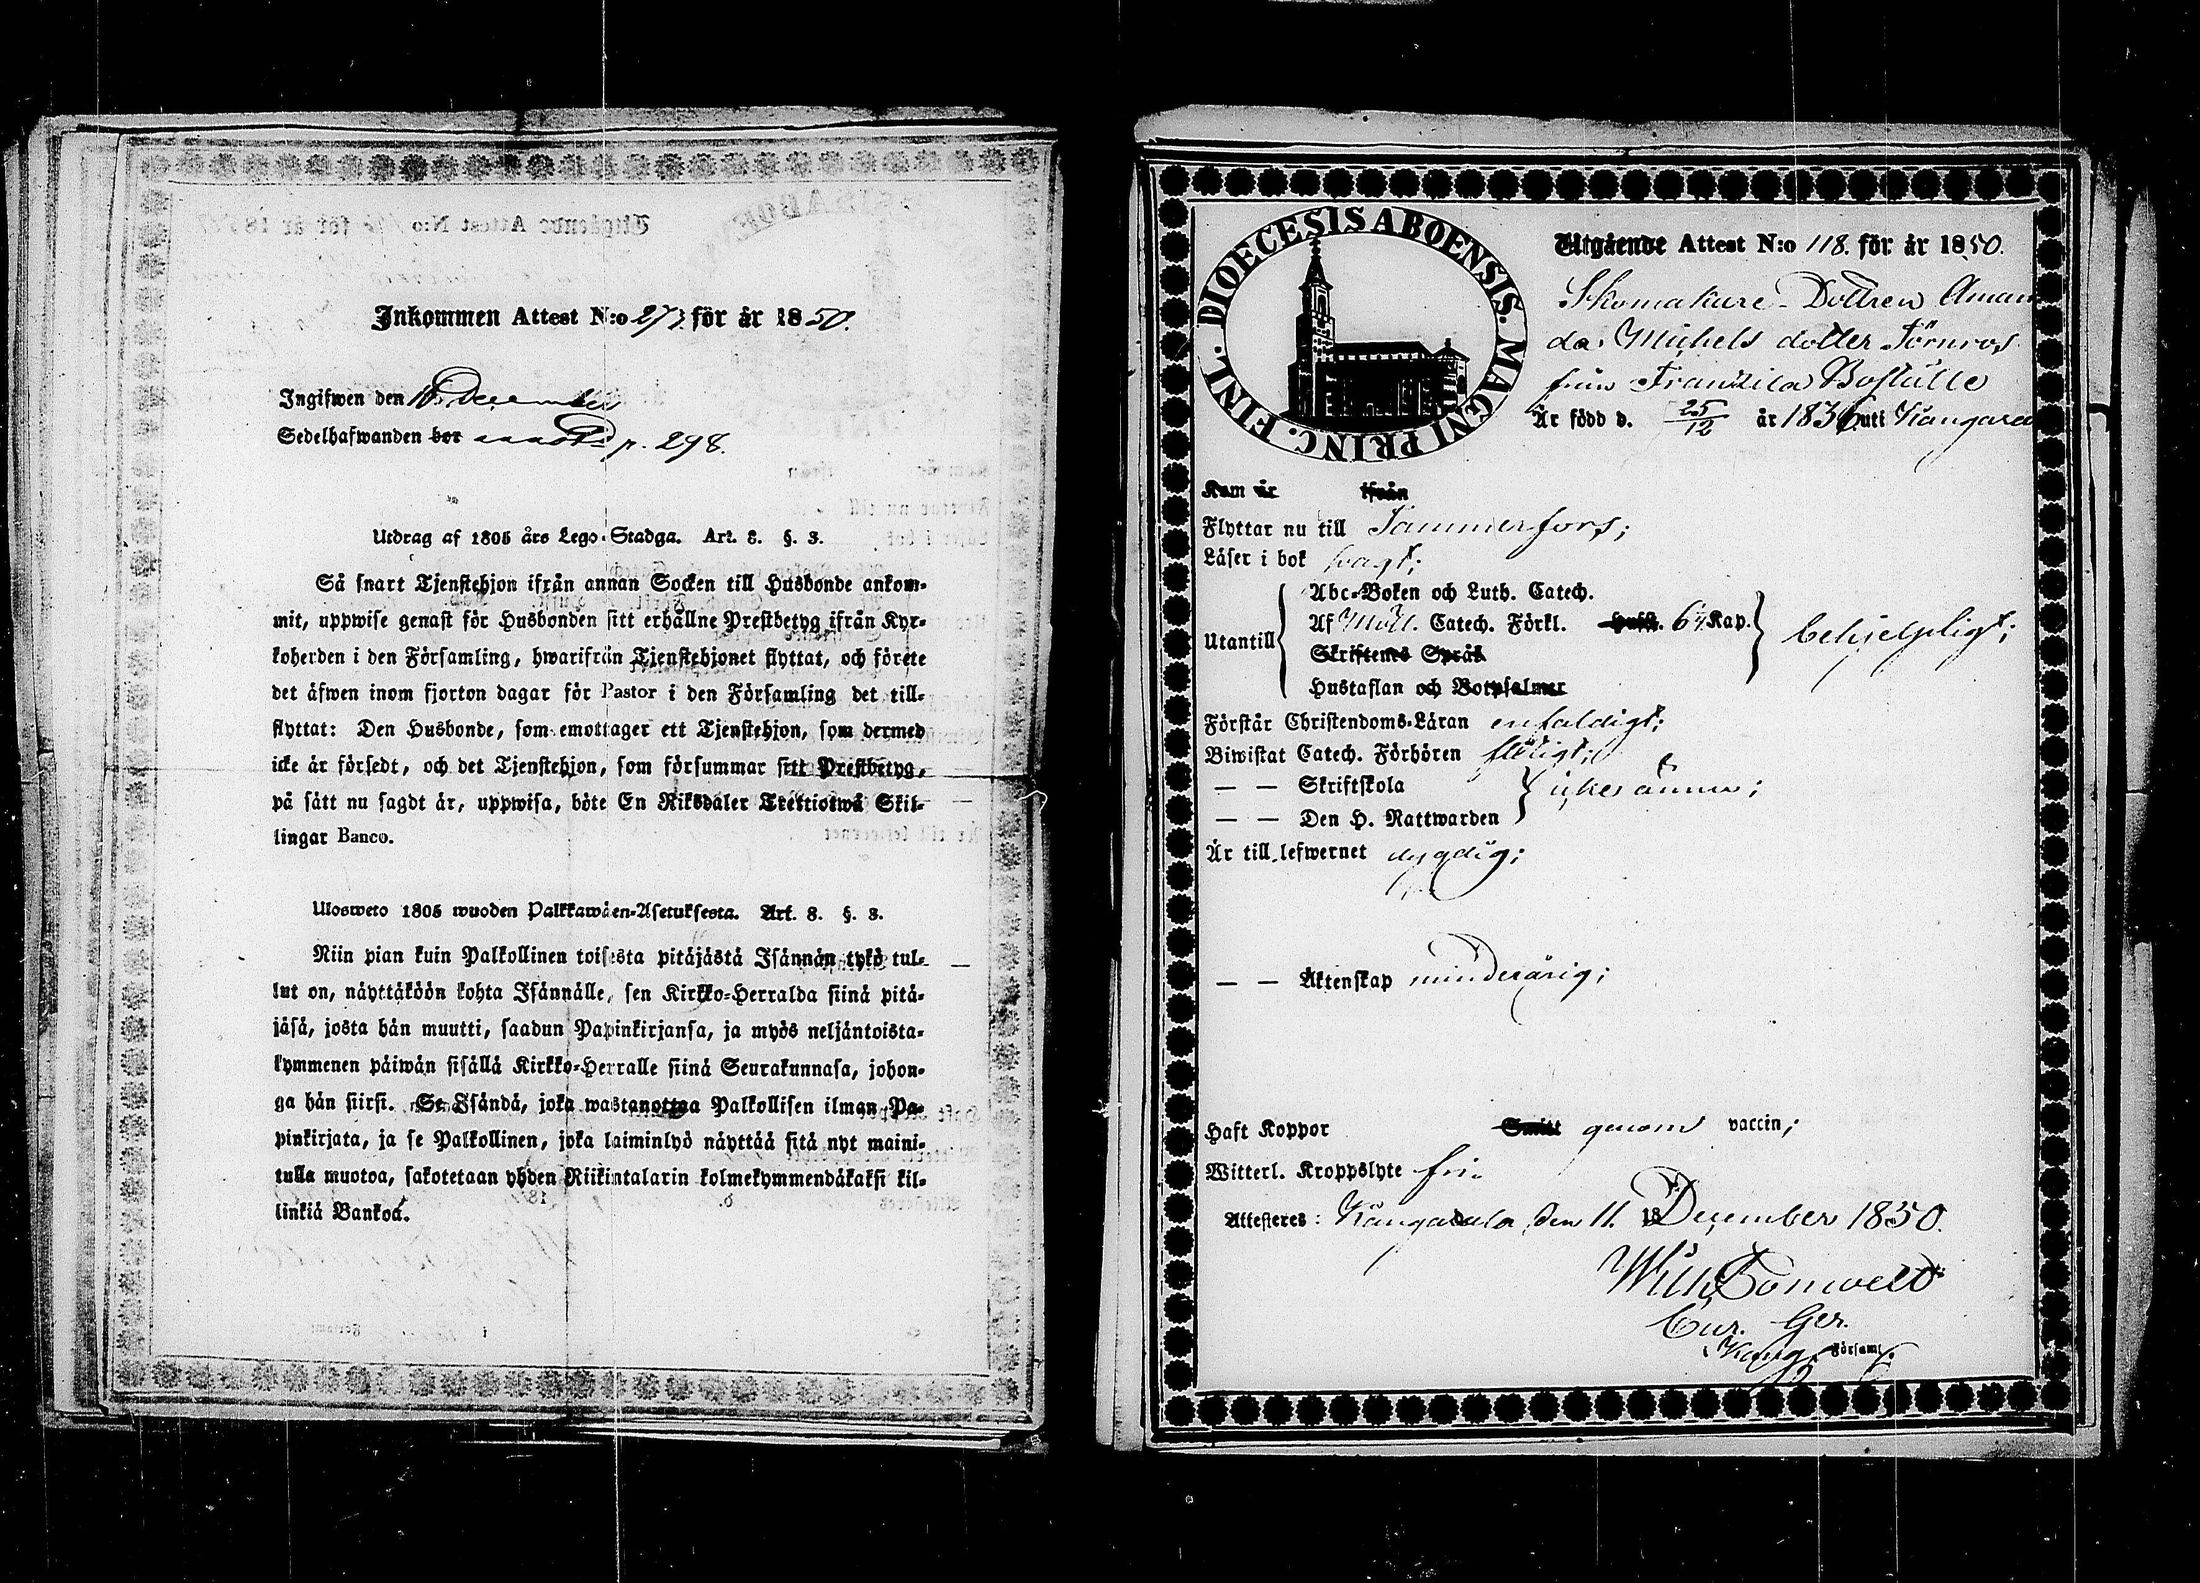 Inkommen Attest N:o 273 för år 1850.
Ingifwen den 16 December
Sedelhafwanden bor p. 298.
Utdrag af 1805 års Lego-Stadga. Art. 8. §. 3.
Så snart Tjenstehjon ifrån annan Socken till Husbonde ankom-
mit, uppwise genast för Husbonden sitt erhållne Prestbetyg ifrån Kyr-
koherden i den Församling, hwarifrån Tjenstehjonet flyttat, och förete
det äfwen inom fjorton dagar för Pastor i den Församling det till-
flyttat: Den Husbonde, som emottager ett Tjenstehjon, som dermed
icke är försedt, och det Tjenstehjon, som försummar sitt Prestbetyg,
på sätt nu sagdt är, uppwisa, böte En Riksdaler Trettiotwå Skil-
lingar Banco.
Ulosweto 1805 wuoden Palkkawäen-Asetuksesta. Art. 8. §. 3.
Niin pian kuin Palkollinen toisesta pitäjästä Isännän tykö tul-
lut on, näyttäköön kohta Isännälle, sen Kirkko-Herralda siinä pitä-
jäsä, josta hän muutti, saadun Papinkirjansa, ja myös neljäntoista-
kymmenen päiwän sisällä Kirkko-Herralle siinä Seurakunnasa, johon-
ga hän siirsi. Se Isändä, joka wastanottaa Palkollisen ilman Pa-
pinkirjata, ja se Palkollinen, joka laiminlyö näyttää sitä nyt maini-
tulla muotoa, sakotetaan yhden Riikintalarin kolmekymmendäkaksi kil-
linkiä Bankoa.
DIOECESIS ABOENSIS. MAGNI PRINC. FINL.
Utgående Attest N:o 118. för år 1850.
Skomakare-Dottren Aman
da Michels dotter Törnros
från Frantzila Boställe
Är född d. 25/12 år 1836 uti Kangasa
Kom år ifrån
Flyttar nu till Tammerfors;
Läser i bok svagt;
Utantill
Abc-Boken och Luth. Catech.
Af Möll. Catech. Förkl. Hufst. 64 Kap.
Skriftenes Språk
Hustaflan och Botpsalmer
behjelpligt;
Förstår Christendoms-Läran enfaldigt;
Biwistat Catech. Förhören flitigt;
— — Skriftskola
— — Den H. Nattwarden
icke ännu;
Är till lefwernet dygdig;
— — Äktenskap minderårig;
Haft Koppor Smitt genom vaccin;
Witterl. Kroppslyte fri.
Attesteres: Kangasala, den 11. 18 December 1850.
Wilh.
Cur. Ger.
Kang. Församl.